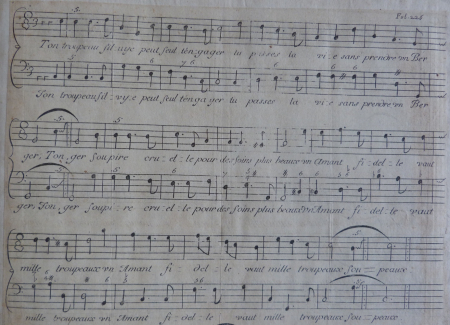 Ton troupeau peut seul t'engager tu passes ta vi = e sans prendre un Ber
Ton troupeau peut seul t'engager tu passes ta vi = e sans prendre un Ber
ger. Ton ger Soupire cru = el = le pour des soins plus beaux un Amant fi = del = le vaut
ger. Ton ger soupi = re cru = el = le pour des soins plus beaux un Amant fi = del = le vaut
mille troupeaux un Amant fi = del = le vaut mille troupeaux. Sou = peaux
mille troupeaux un Amant fi = del = le vaut mille troupeaux Sou = peaux